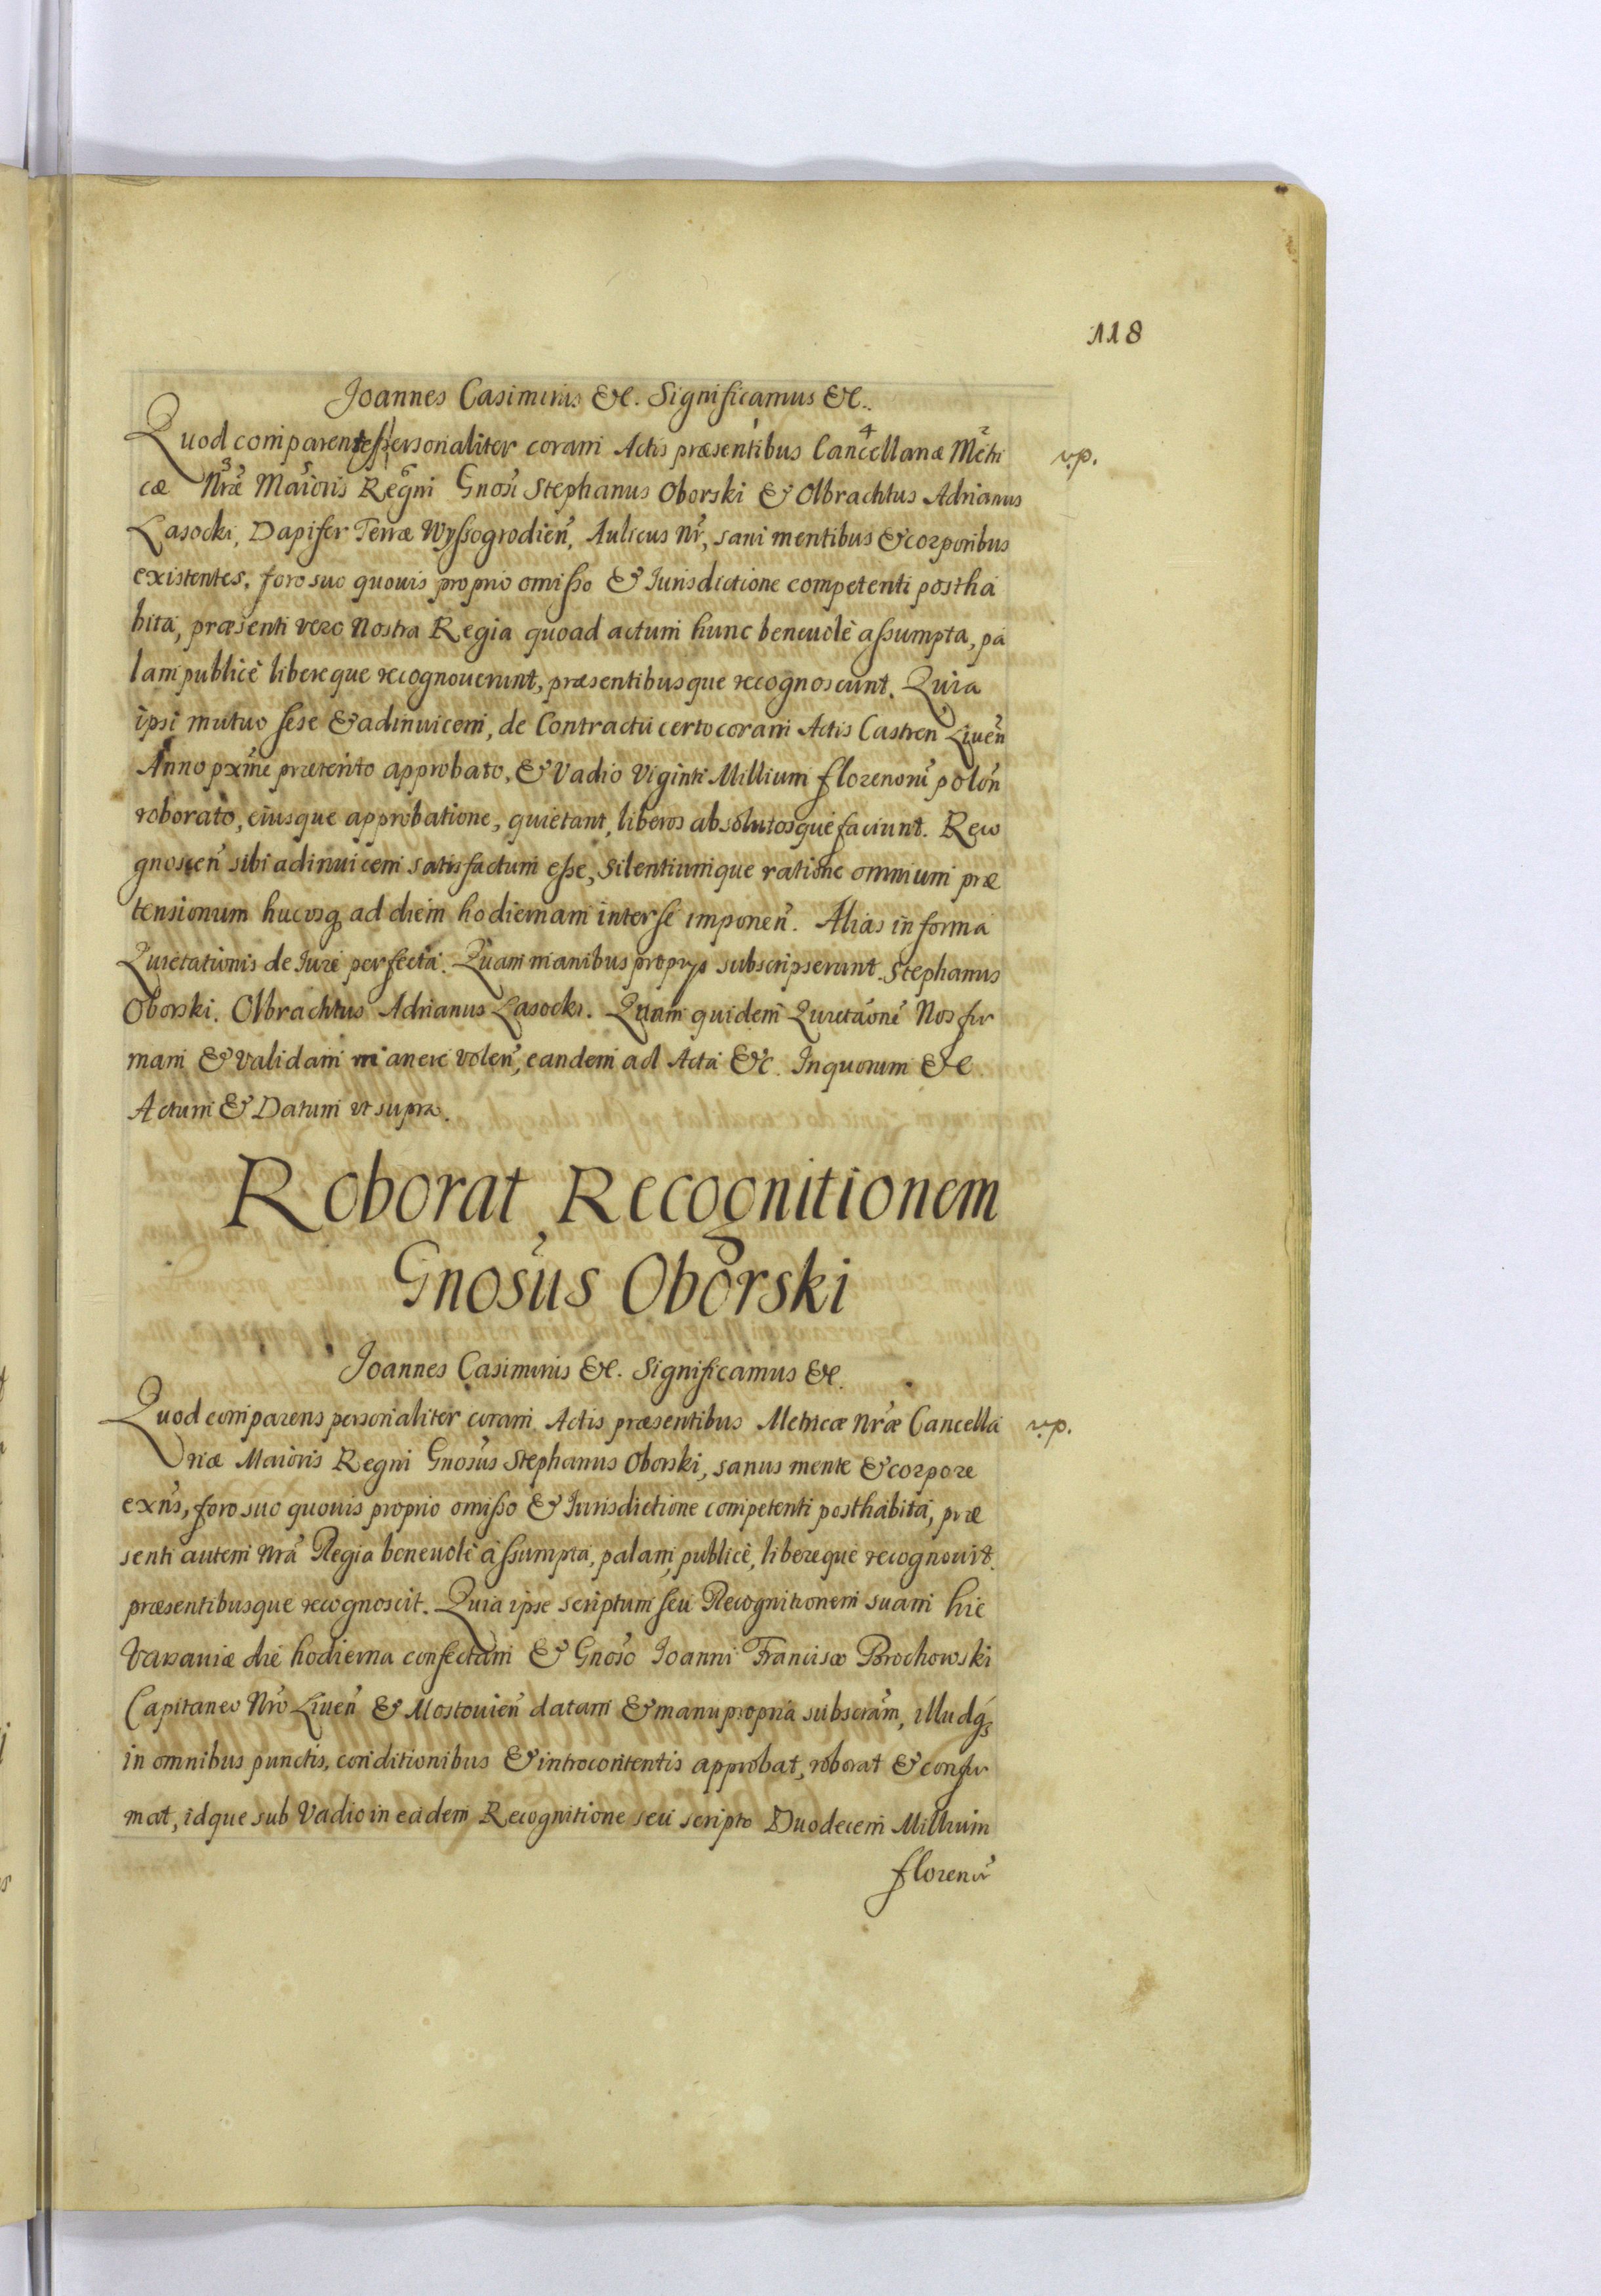 118
Joannes Casimirus &c. Significamus &c.
Quod comparentes personaliter coram Actis præsentibus Cancellariæ Metri v.p.
cæ Nræ Maioris Regni Gnosi Stephanus Oborski & Olbrachtus Adrianus
Lasocki, Dapifer Terræ Wyssogrodien, Aulicus Nr, sani mentibus & corporibus
existentes, foro suo quouis proprio omisso & Jurisdictione competenti postha
bita, præsenti vero Nostra Regia quoad actum hunc beneuolè assumpta, pa
lam publicè libereque recognouerunt, præsentibusque recognoscunt. Quia
ipsi mutuo sese & adinuicem, de Contractu certo coram Actis Castren Liuen
Anno pxme præterito approbato, & Vadio Viginti Millium florenorũ polon
roborato, eiusque approbatione, quietant, liberos absolutosque faciunt. Reco
gnoscen sibi adinuicem satisfactum esse, Silentiumque ratione omnium præ
tensionum hucusq ad diem hodiernam inter se imponen. Alias in forma
Quietationis de Jure perfecta. Quam manibus proprys subscripserunt. Stephanus
Oborski. Olbrachtus Adrianus Lasocki. Quam quidem Quietaone Nos fir
mam & validam manere volen, eandem ad Acta &c. In quorum &c.
Actum & Datum ut supra.
Roborat Recognitionem
Gnosus Oborski
Joannes Casimirus &c. Significamus &c.
Quod comparens personaliter coram Actis præsentibus Metricæ Nræ Cancella v.p.
riæ Maioris Regni Gnosus Stephanus Oborski, sanus mente & corpore
exns, foro suo quouis proprio omisso & Jurisdictione competenti posthabita, præ
senti autem Nra Regia beneuolè assumpta, palam, publicè, libereque recognouit
præsentibusque recognoscit. Quia ipse scriptum seu Recognitionem suam hic
Varsauiæ die hodierna confectam & Gnoso Joanni Francisco Brochowski
Capitaneo Nro Liuen & Mostouien datam & manu propria subscram, illudq
in omnibus punctis, conditionibus & introcontentis approbat, roborat & confir
mat, idque sub Vadio in eadem Recognitione seu scripto Duodecem Millium
florenor